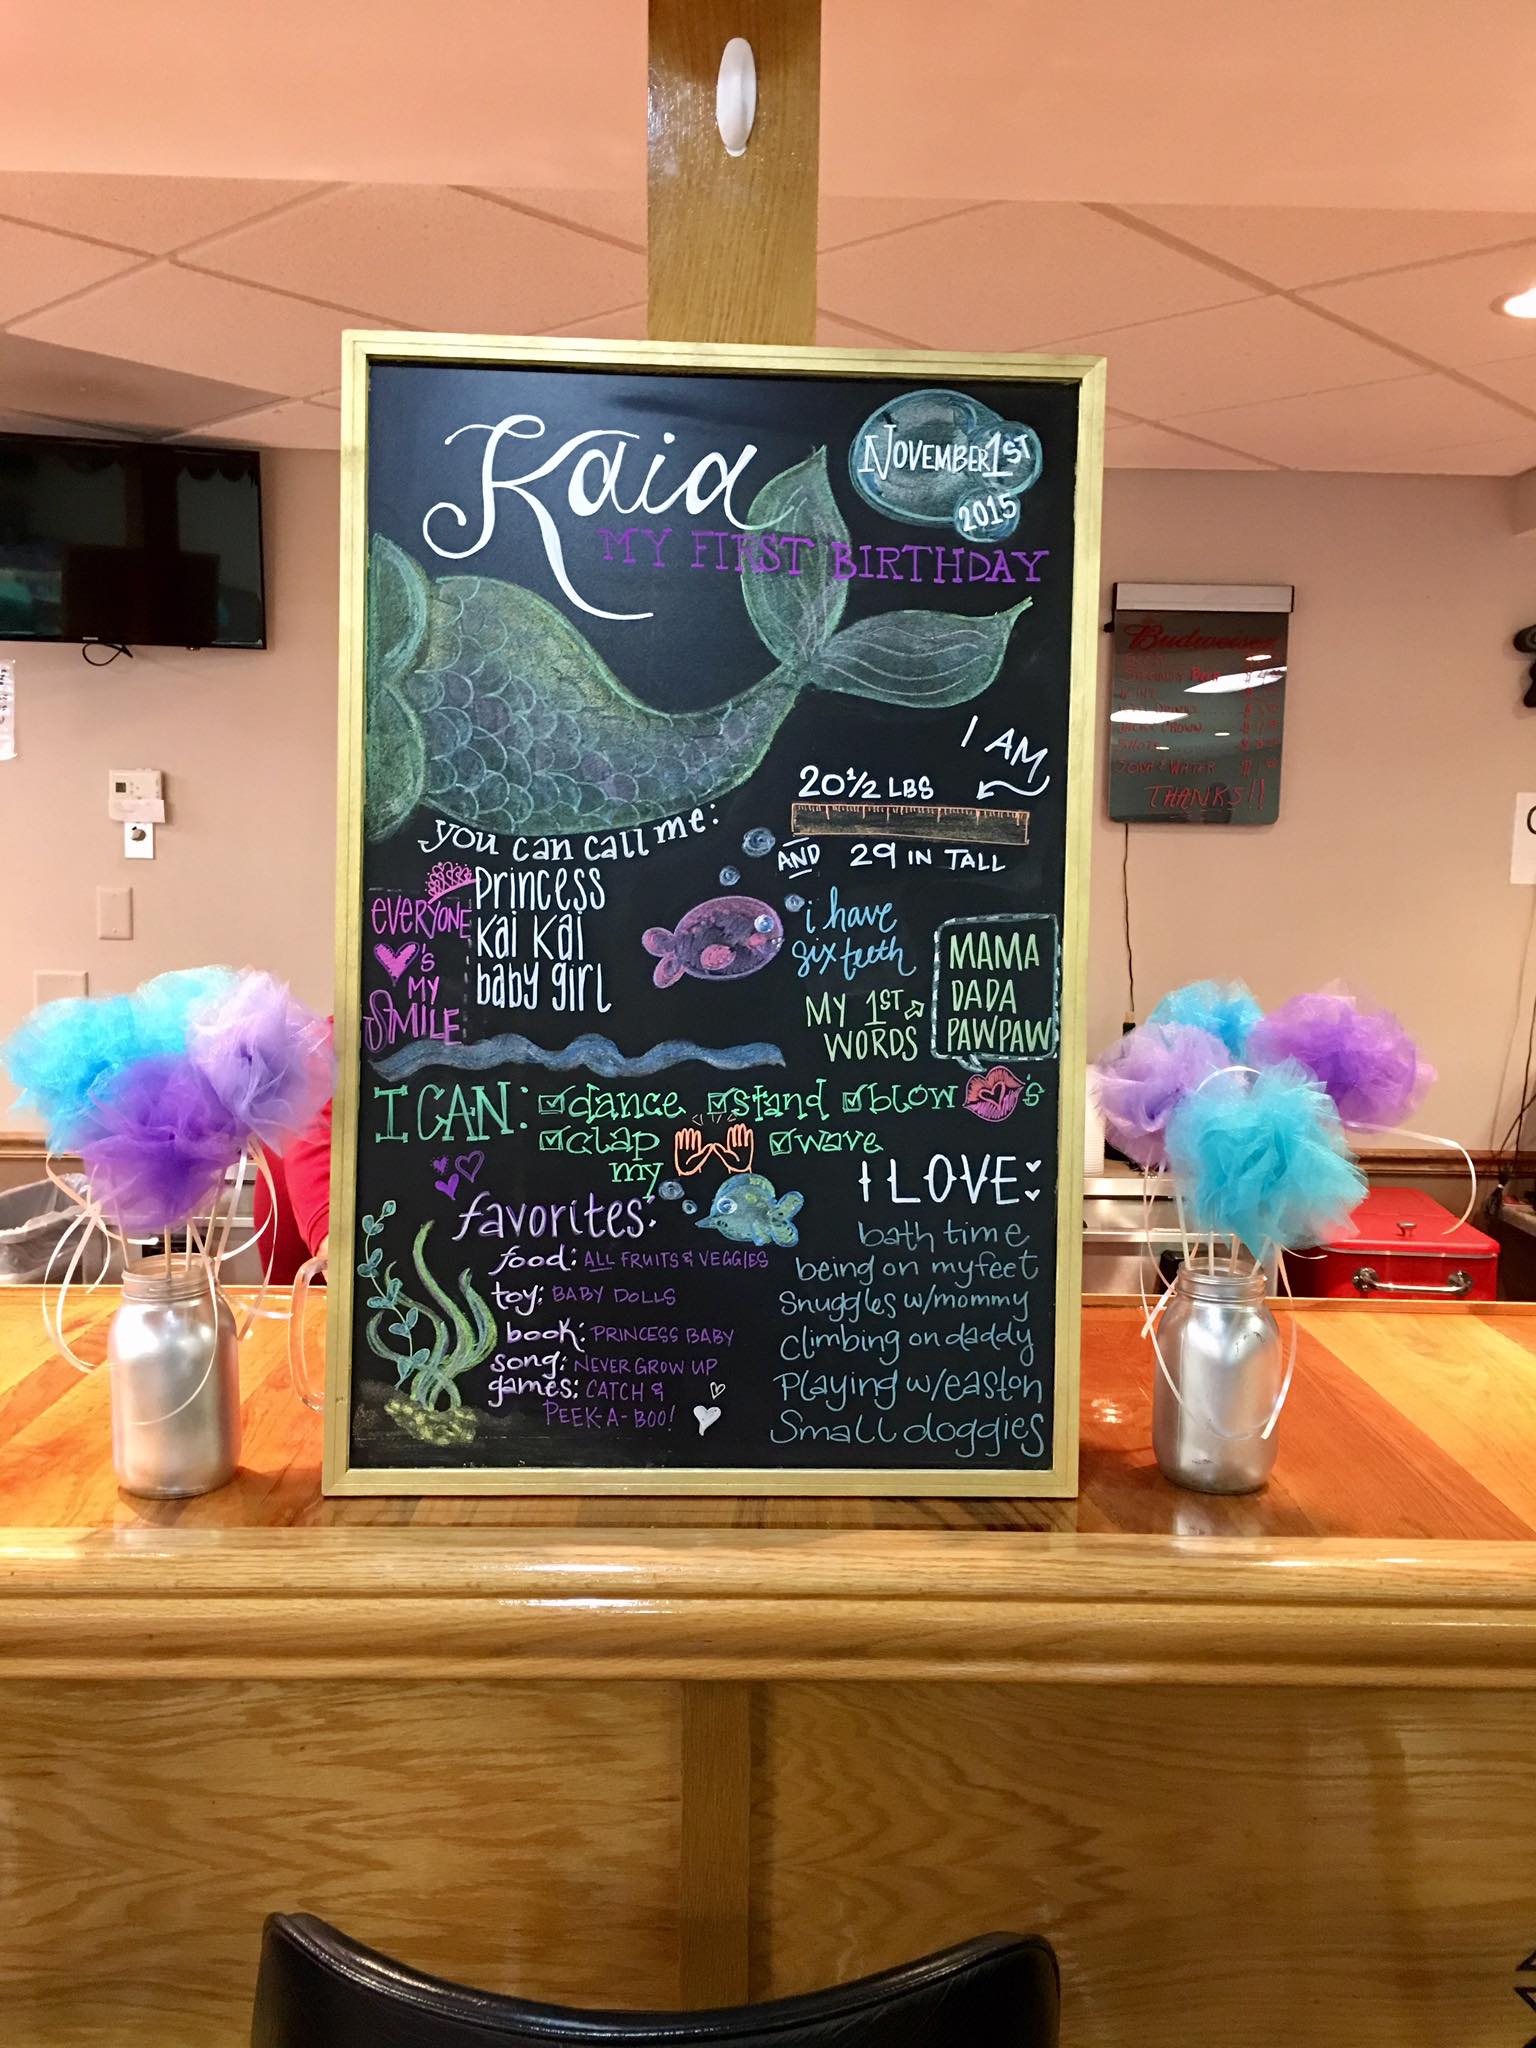 Kaia
NOVEMBER 1ST
2015
MY FIRST BIRTHDAY
I AM
20 1/2 LBS
AND 29 IN TALL
you can call me:
princess
kai kai
baby girl
EVERYONE
♥'s
MY
SMILE
i have
six teeth
MY 1ST
WORDS
MAMA
DADA
PAWPAW
I CAN: ☑ dance ☑ stand ☑ blow 's
☑ clap ☑ wave
my
favorites:
food: ALL FRUITS & VEGGIES
toy: BABY DOLLS
book: PRINCESS BABY
song: NEVER GROW UP
games: CATCH &
PEEK-A-BOO!
I LOVE:
bath time
being on my feet
snuggles w/mommy
climbing on daddy
Playing w/easton
Small doggies
Budweiser
SODA & WATER
THANKS!!